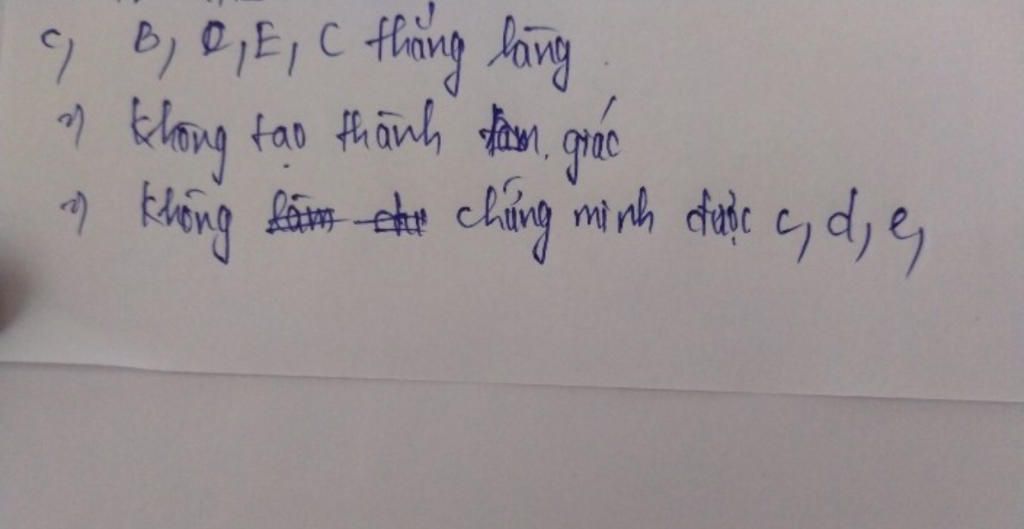 c, B, D, E, C thẳng hàng.
=) không tạo thành tam giác
=) không chứng minh được c, d, e,